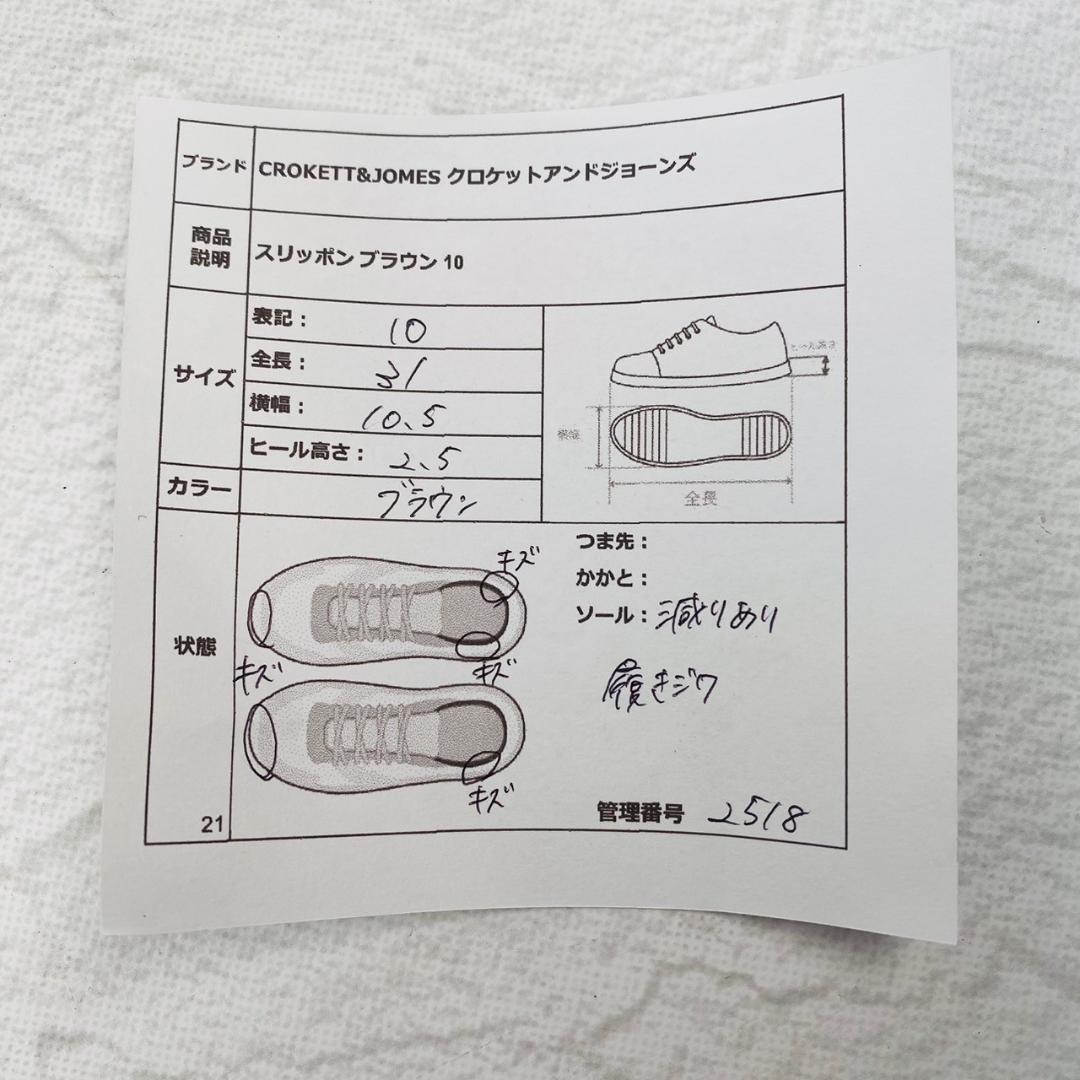 ブランド CROKETT&JOMES クロケットアンドジョーンズ
商品
説明
スリッポン ブラウン 10
サイズ
表記： 10
全長： 31
横幅： 10.5
ヒール高さ： 2.5
カラー ブラウン
ヒール高さ
横幅
全長
状態
キズ
キズ
キズ
キズ
つま先：
かかと：
ソール： 減りあり
履きジワ
21
管理番号 2518